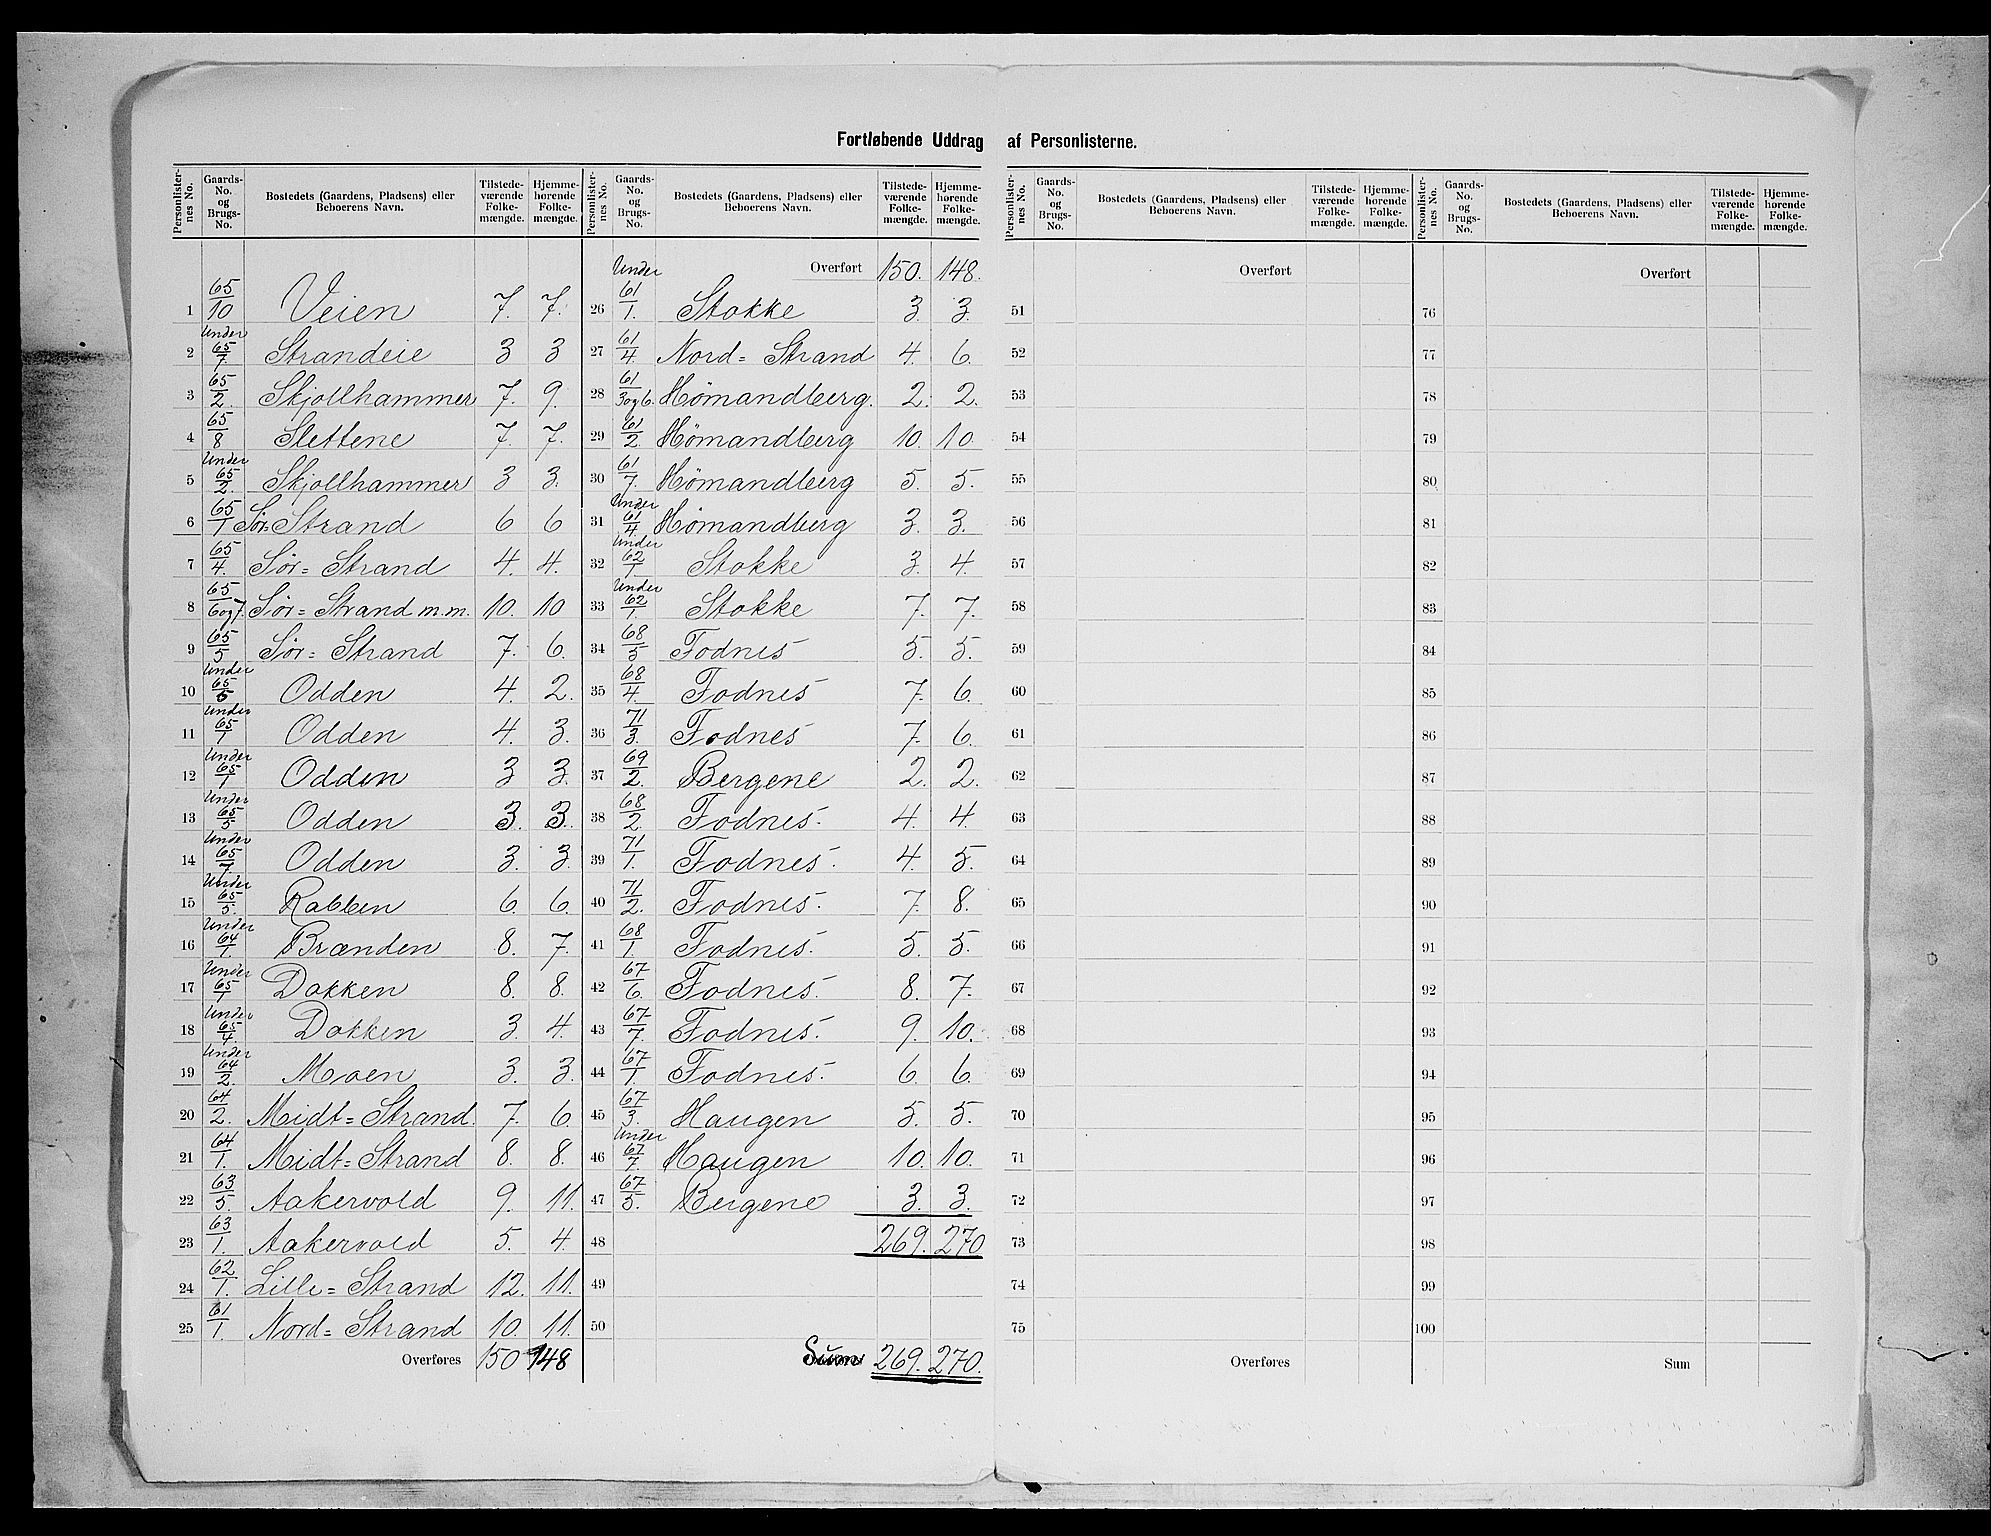 Fortløbende Uddrag af Personlisterne.
Personlister- nes No. | Gaards- No. og Brugs- No. | Bostedets (Gaardens, Pladsens) eller Beboerens Navn. | Tilstede- værende Folke- mængde. | Hjemme- hørende Folke- mængde.
1 65/10 Veien 7. 7.
2 Under 65/7 Strandeie 3 3
3 65/2. Skjollhammer 7. 9.
4 65/8 Slettene 7. 7.
5 Under 65/2. Skjollhammer 3 3.
6 65/1 Sør= Strand 6 6
7 65/4. Sør= Strand 4. 4.
8 65/6 og 7. Sør= Strand m.m. 10. 10
9 65/5 Sør= Strand 7. 6.
10 Under 65/5 Odden 4. 2.
11 Under 65/1 Odden 4. 3.
12 Under 65/1 Odden 3 3.
13 Under 65/5 Odden 3. 3.
14 Under 65/7. Odden 3. 3.
15 Under 65/5. Rabben 6. 6.
16 Under 64/1. Brænden 8. 7.
17 Under 65/1 Dokken 8. 8.
18 Under 65/4. Dokken 3. 4.
19 Under 64/2. Moen 3. 3.
20 64/2. Midt= Strand. 7. 6.
21 64/1. Midt= Strand 8. 8.
22 63/5. Aakervold 9. 11.
23 63/1. Aakervold 5. 4.
24 62/1. Lille= Strand 12. 11.
25 61/1. Nord= Strand 10. 11.
Overføres 150 148
Personlister- nes No. | Gaards- No. og Brugs- No. | Bostedets (Gaardens, Pladsens) eller Beboerens Navn. | Tilstede- værende Folke- mængde. | Hjemme- hørende Folke- mængde.
Overført 150. 148.
26 Under 61/1. Stokke 3. 3.
27 61/4. Nord= Strand 4. 6.
28 61/3 og 6. Hømandberg. 2. 2.
29 61/2. Hømandberg 10. 10.
30 61/7. Hømandberg 5. 5.
31 Under 61/4. Hømandberg 3. 3.
32 Under 62/1 Stokke 3. 4.
33 Under 62/1. Stokke 7. 7.
34 68/5 Fodnes 5. 5.
35 68/4. Fodnes 7. 6.
36 71/3. Fodnes 7. 6.
37 69/2. Bergene 2. 2.
38 68/2. Fodnes. 4. 4.
39 71/1. Fodnes. 4. 5.
40 71/2. Fodnes. 7. 8.
41 68/1. Fodnes. 5. 5.
42 67/6. Fodnes. 8. 7.
43 67/7. Fodnes. 9. 10.
44 67/1. Fodnes. 6. 6.
45 67/3. Haugen 5. 5.
46 Under 67/7. Haugen 10. 10.
47 67/5. Bergene 3. 3.
48 269. 270
49
50
Sum 269. 270.
Personlister- nes No. | Gaards- No. og Brugs- No. | Bostedets (Gaardens, Pladsens) eller Beboerens Navn. | Tilstede- værende Folke- mængde. | Hjemme- hørende Folke- mængde.
Overført
51
52
53
54
55
56
57
58
59
60
61
62
63
64
65
66
67
68
69
70
71
72
73
74
75
Overføres
Personlister- nes No. | Gaards- No. og Brugs- No. | Bostedets (Gaardens, Pladsens) eller Beboerens Navn. | Tilstede- værende Folke- mængde. | Hjemme- hørende Folke- mængde.
Overført
76
77
78
79
80
81
82
83
84
85
86
87
88
89
90
91
92
93
94
95
96
97
98
99
100
Sum